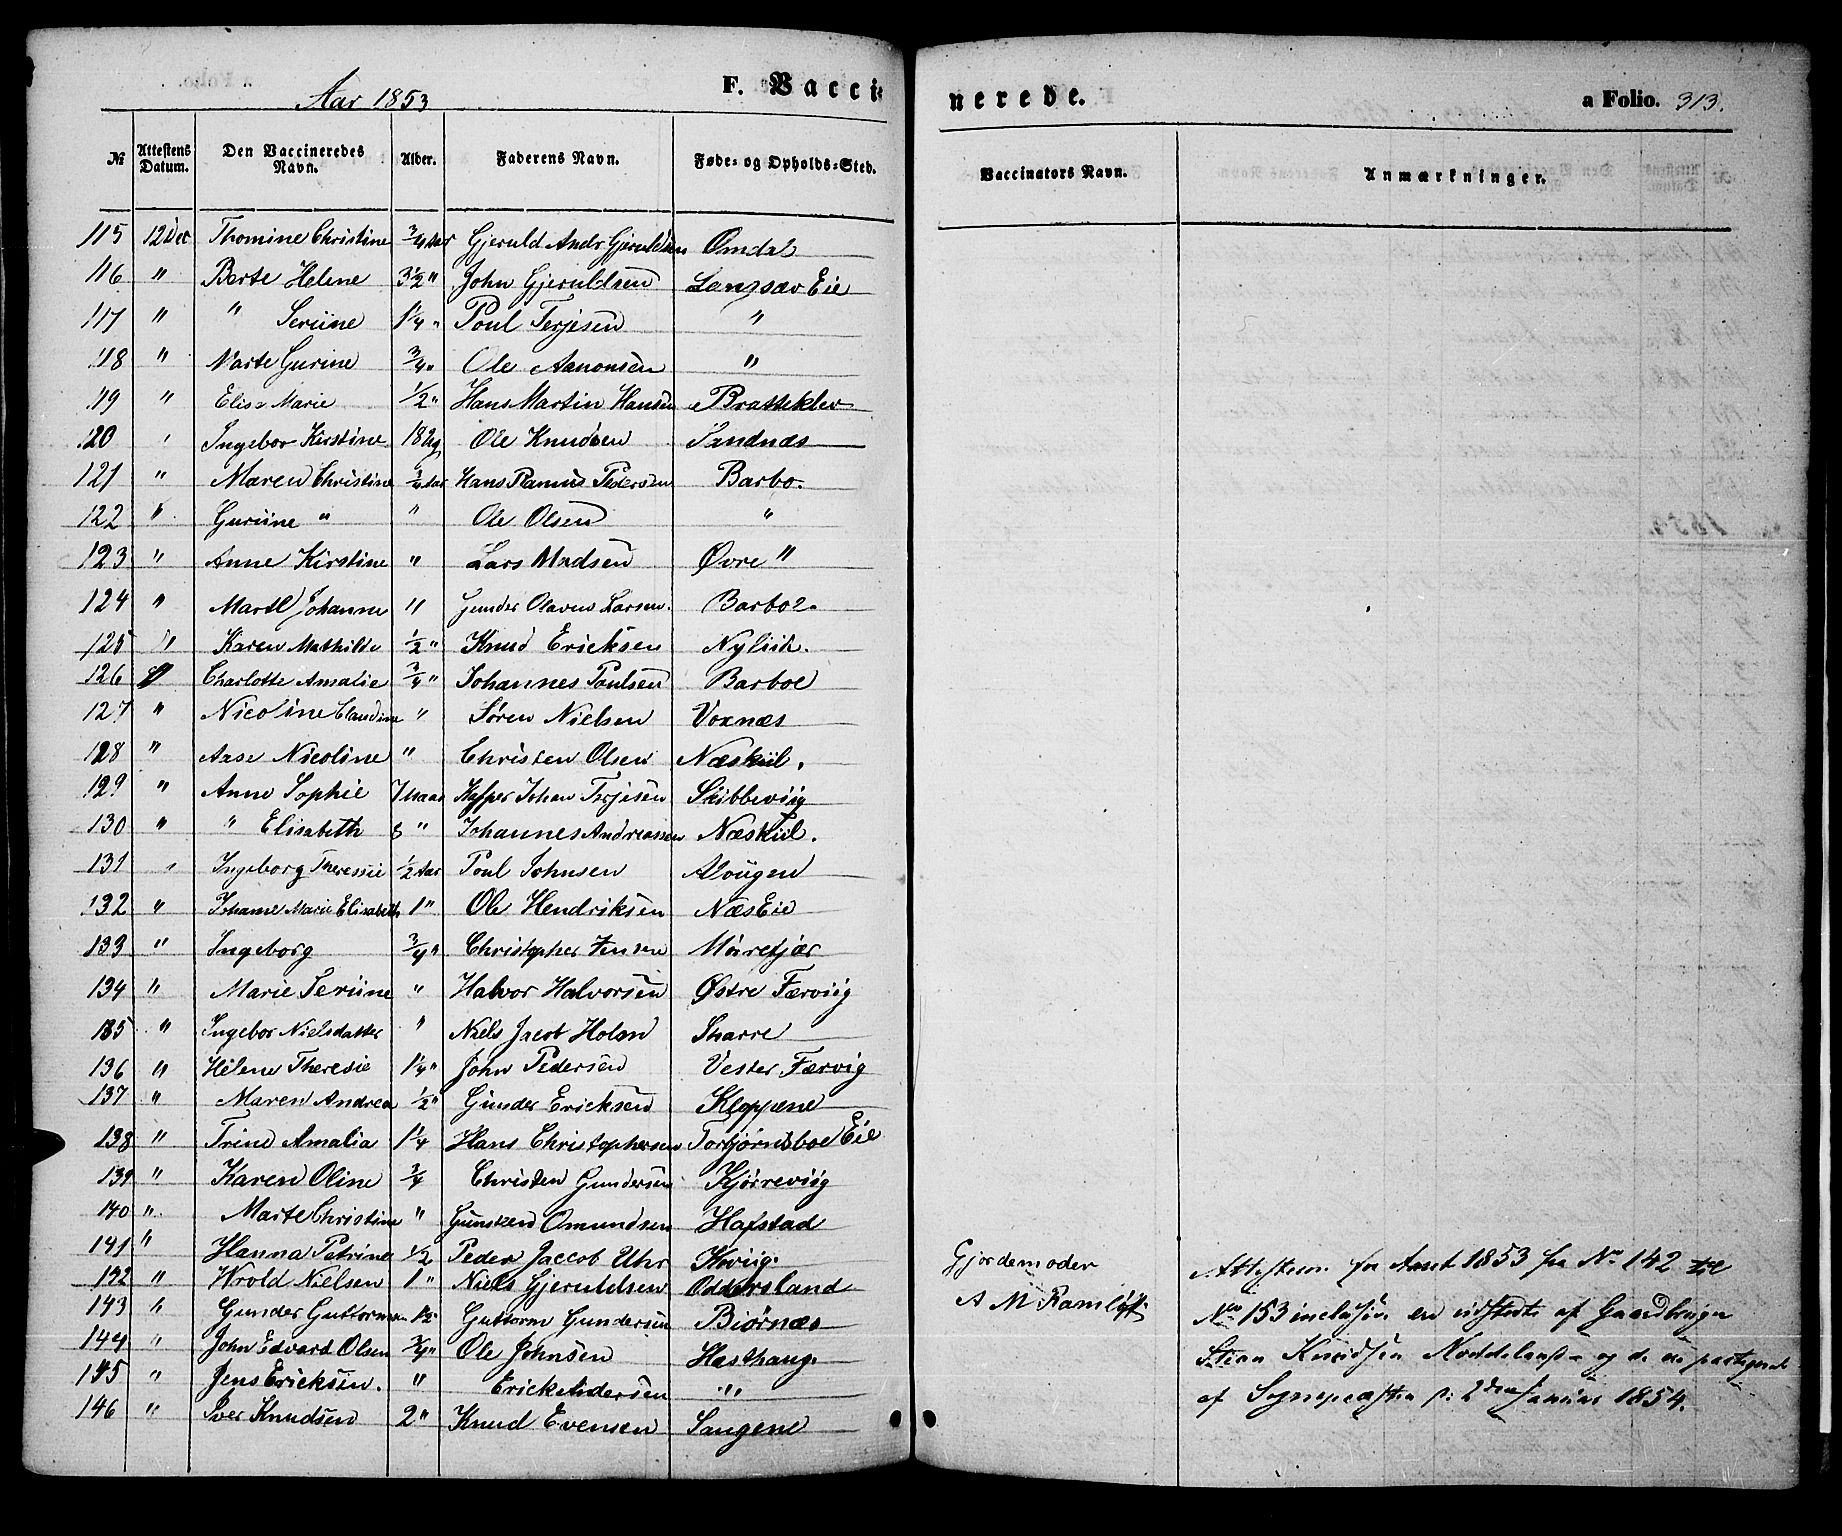 Aar 1853 F. Vacci-
nerede. a Folio. 313.
№ Attestens Datum. Den Vaccineredes Navn. Alder. Faderens Navn. Føde- og Opholds-Sted. Vaccinators Navn. Anmærkninger.
115 12 Dec Thomine Christine 3/4 Aar Gjeruld Andr Gjeruldsen Omdal
116 " Berte Helene 3 1/2 " John Gjeruldsen Langsæv Eie
117 " " Seriine 1 1/4 " Poul Terjesen "
118 " Marte Gurine 3/4 " Ole Aanonsen "
119 " Elise Marie 1/2 " Hans Martin Hansen Bratteklev
120 " Ingebor Kirstine 18 Ole Knudsen Sandnæs
121 " Maren Christine 3/4 Aar Hans Rasmus Pedersen Barbo.
122 " Guriine " " Ole Olsen "
123 " Anne Kirstine " Lars Madsen Øvre "
124 " Marte Johanne " Gunder Olavus Larsen. Barboe.
125 " Karen Mathilde 1/2 " Knud Ericksen
126 " Charlotte Amalie 3/4 " Johannes Poulsen Barboe
127 " Nicoline Claudine " Søren Nielsen Voxnæs
128 " Aase Nicoline " Christen Olsen Næskiil.
129 " Anne Sophie 7 Maan Kasper Johan Terjesen Skibbeviig
130 " " Elisabeth 8 " Johannes Andreassen Næskiil.
131 " Ingeborg Theresie 1/2 Aar Poul Johnsen Alvugen
132 " Johanne Marie Elisabeth 1 " Ole Hendriksen Næs Eie
133 " Ingeborg 3/4 " Christopher Jensen Moirefjær
134 " Marie Seriine " Halvor Halvorsen Østre Færviig
135 " Ingebor Nielsdatter " Niels Jacob Holm Skarre
136 " Helene Theresie 1 1/4 " John Pedersen Vester Færvig
137 " Maren Andrea 1/2 " Gunder Ericksen Kloppene
138 " Trine Amalia 1 1/4 Hans Christophersen Torbjørnsboe Eie
139 " Karen Oline 3/4 Christen Gundersen Kjørreviig
140 " Marte Christine " Omundsen Hafstad
141 " Hanna Petrine 1/2 Peder Jaccob Uhr Kroviig.
142 " Wrold Nielsen 1 " Niels Gjeruldsen Oddersland
143 " Gunder Guttormsen 1 1/2 " Guttorm Gundersen Biørnæs
144 " John Edvard Olsen 3/4 " Ole Johnsen Hasthaug.
145 " Jens Ericksen. " Erick Andersen "
146 " Iver Knudsen 2 " Knud Evensen Sangene
Gjordemoder
A M Ramløft
Attesterne for Aaret 1853 fra No 142 til
No 153 inclusive ere udstedte af Gaardbruger
Stian Knudsen Noddeland og de ere paategnede
af Sognepræsten p: 2den Januar 1854.